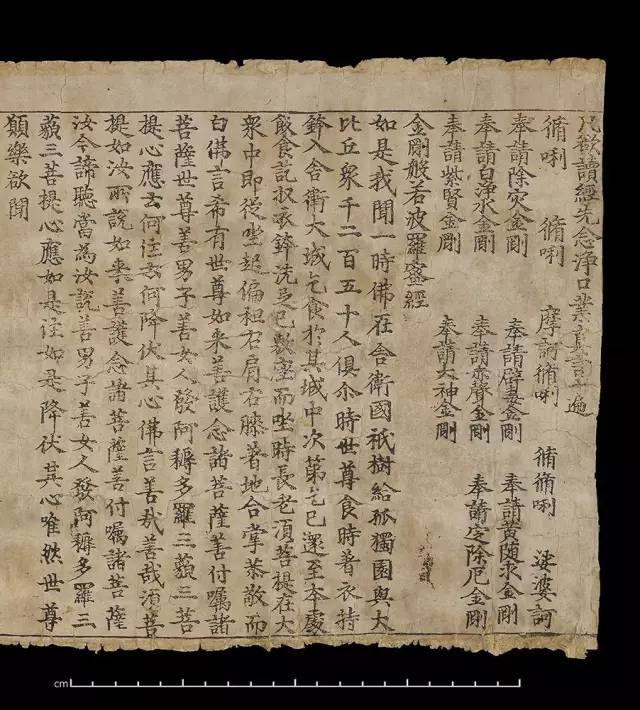 凡欲讀經先念淨口業真言一遍
脩唎 脩唎 摩訶脩唎 脩脩唎 娑婆訶
奉請除灾金剛 奉請辟毒金剛 奉請黃隨求金剛
奉請白淨水金剛 奉請赤聲金剛 奉請定除厄金剛
奉請紫賢金剛 奉請大神金剛
金剛般若波羅蜜經
如是我聞一時佛在舍衛國祇樹給孤獨園與大
比丘衆千二百五十人俱尒時世尊食時著衣持
鉢入舍衛大城乞食於其城中次第乞已還至本處
飯食訖收衣鉢洗足已敷座而坐時長老須菩提在大
衆中即從坐起偏袒右肩右膝著地合掌恭敬而
白佛言希有世尊如来善護念諸菩薩善付囑諸
菩薩世尊善男子善女人發阿耨多羅三藐三菩
提心應云何住云何降伏其心佛言善哉善哉須菩
提如汝所說如来善護念諸菩薩善付囑諸菩薩
汝今諦聽當為汝說善男子善女人發阿耨多羅三
藐三菩提心應如是住如是降伏其心唯然世尊
願樂欲聞
cm